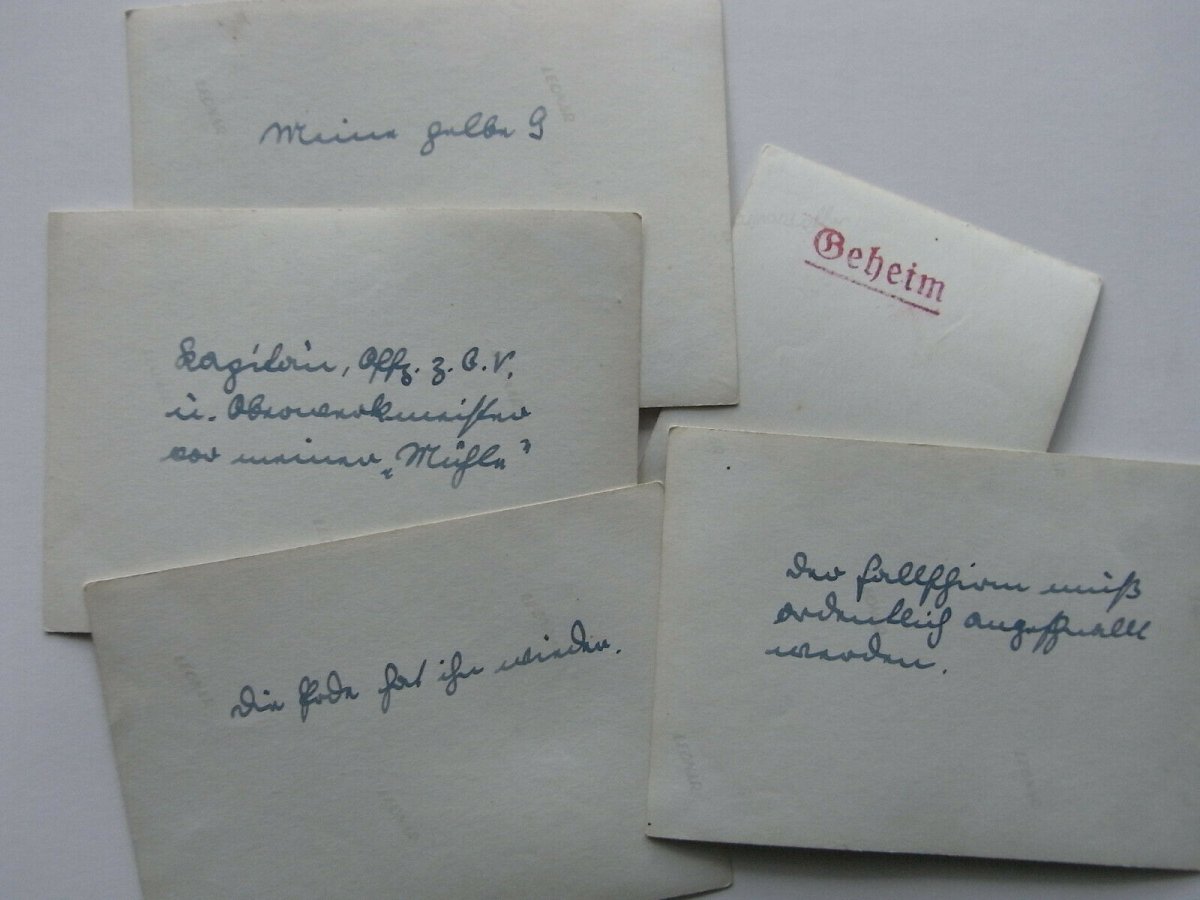 Meine gelbe 9
Geheim
Kapitän, Offz. z. b. V.
u. Oberwerkmeister
vor meiner „Mühle"
Der Fallschirm muß
ordentlich angeschnallt
werden.
Die Erde hat ihn wieder.